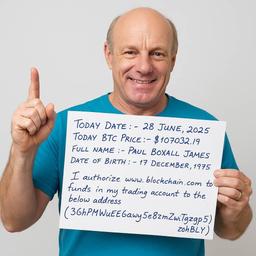 TODAY DATE :- 28 JUNE, 2025
TODAY BTC PRICE :- $107032.19
FULL NAME :- PAUL BOXALL JAMES
DATE OF BIRTH :- 17 DECEMBER, 1975
I authorize www.blockchain.com to
funds in my trading account to the
below address
(3GhPMWuEEGawy5e8zmZwiTgzgp5)
zohBLY)